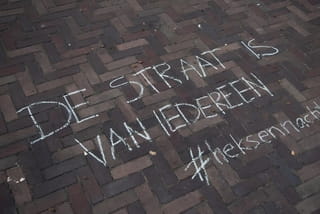 DE STRAAT IS
VAN IEDEREEN
#heksennacht